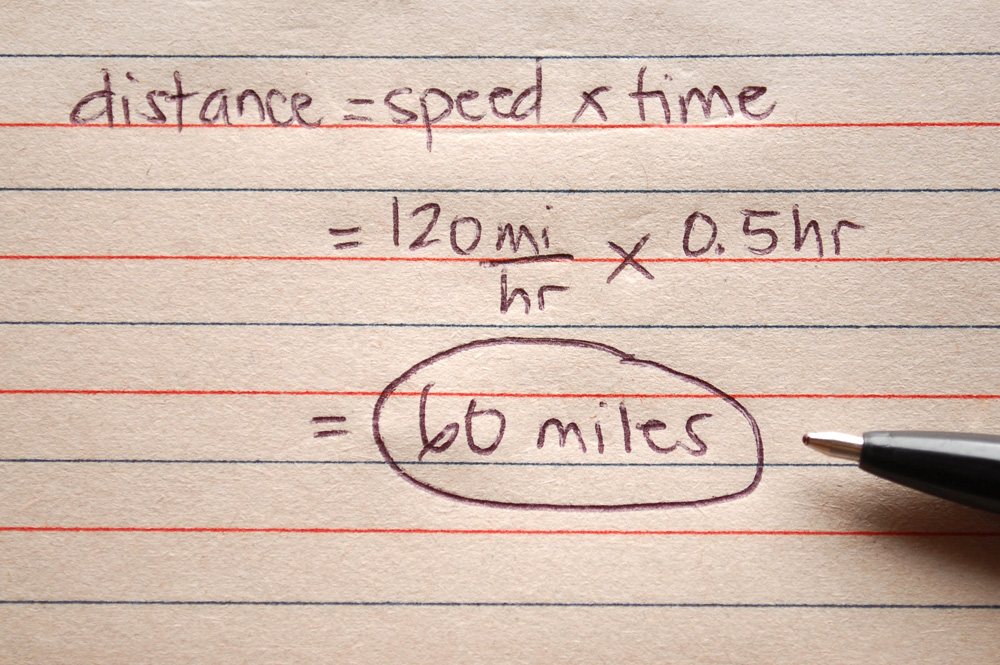 distance = speed x time
= 120 mi/hr x 0.5 hr
= 60 miles